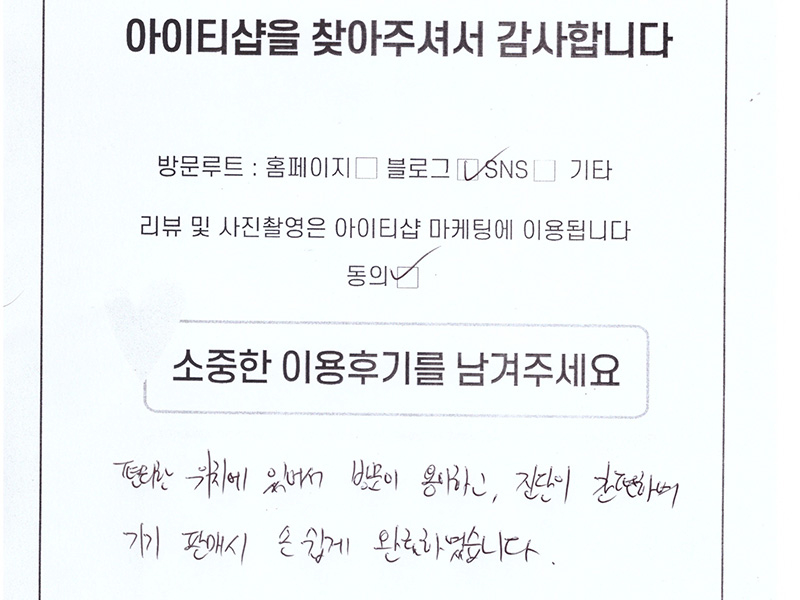 아이티샵을 찾아주셔서 감사합니다
방문루트 : 홈페이지☐ 블로그☑ SNS☐ 기타
리뷰 및 사진촬영은 아이티샵 마케팅에 이용됩니다
동의☑
소중한 이용후기를 남겨주세요
편리한 위치에 있어서 방문이 용이하고, 진단이 간편하며
기기 판매시 손쉽게 완료하였습니다.